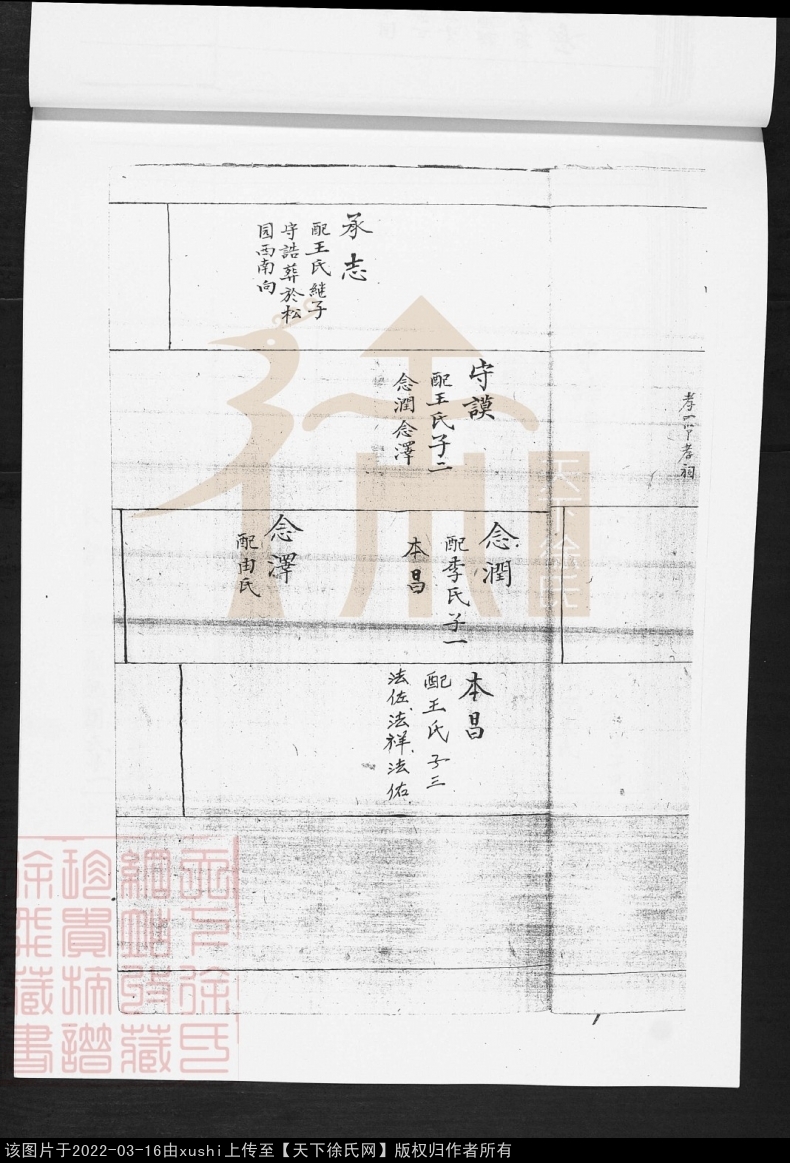 承志
配王氏継子
守誥葬於松
园西南向
守謨
配王氏子二
念潤念澤
念潤
配李氏子一
本昌
念澤
配由氏
本昌
配王氏子三
法佐法祥法佑
天下徐氏
该图片于2022-03-16由xushi上传至【天下徐氏网】版权归作者所有